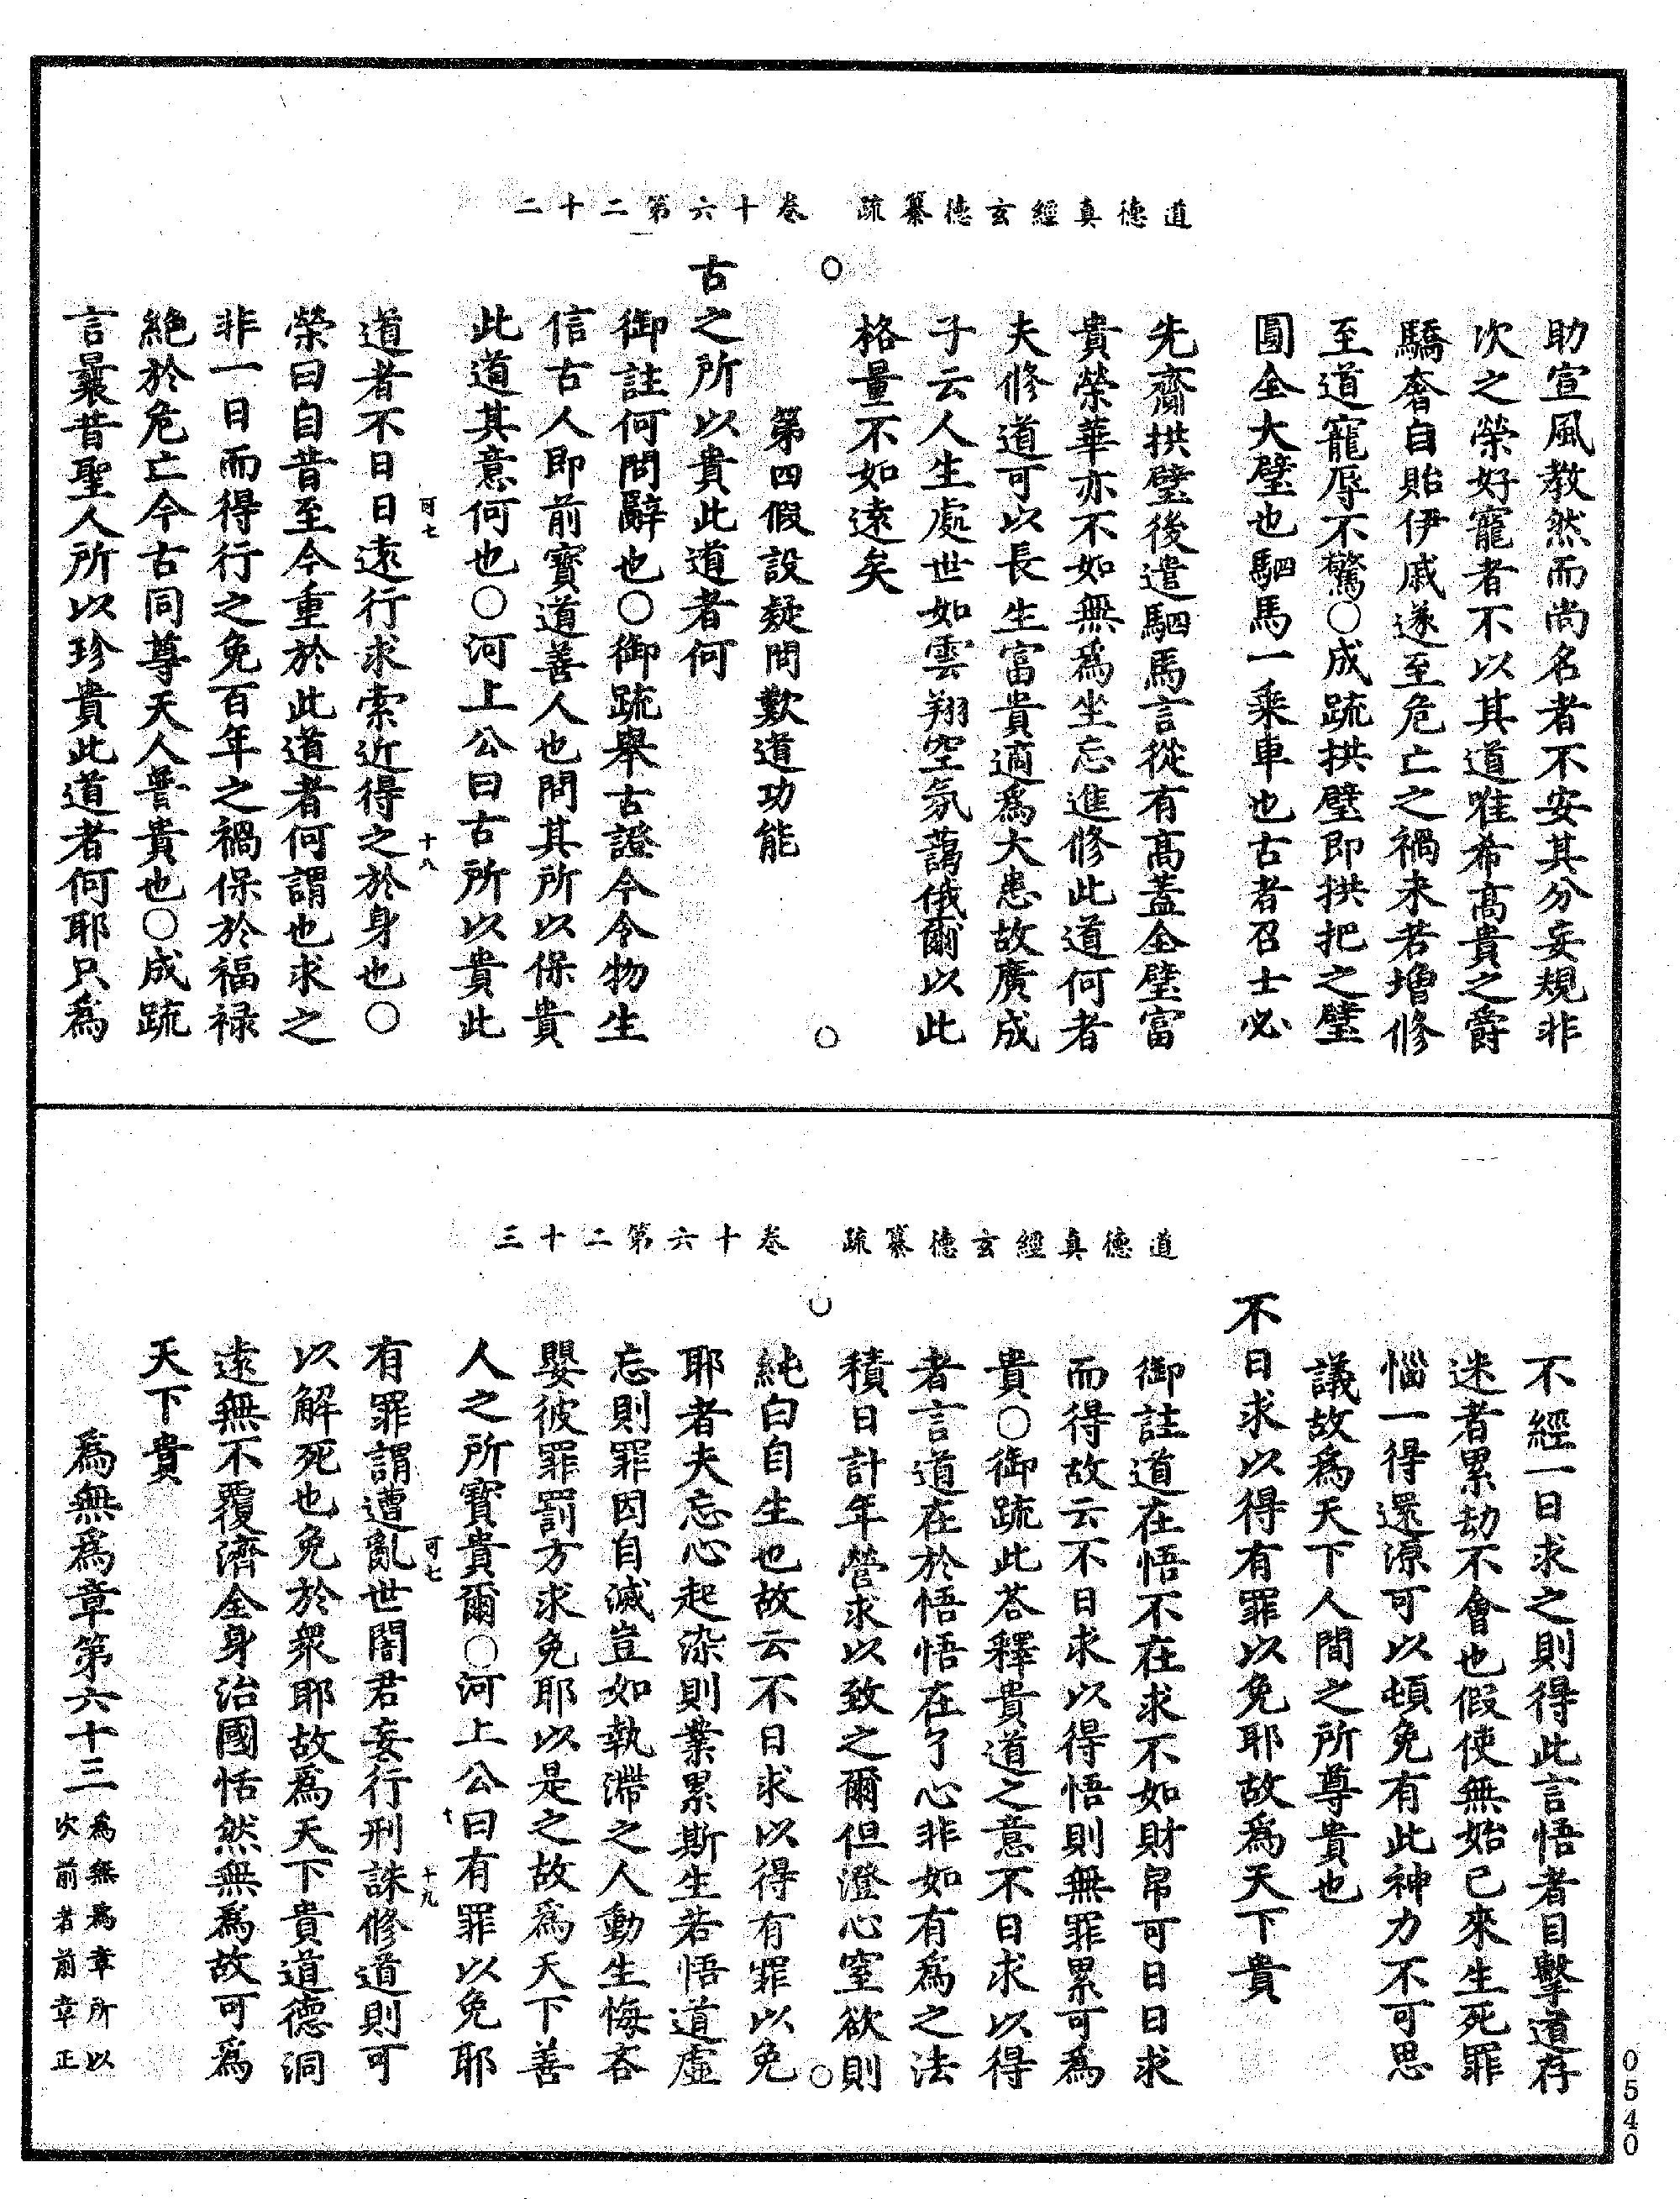 道德真經玄德纂疏　卷十六第二十二
助宣風教然而尚名者不安其分妄規非
次之榮好寵者不以其道唯希高貴之爵
驕奢自貽伊戚遂至危亡之禍未若增修
至道寵辱不驚○成疏拱璧即拱把之璧
圓全大璧也駟馬一乘車也古者召士必
先齎拱璧後遣駟馬言從有高蓋全璧富
貴榮華亦不如無為坐忘進修此道何者
夫修道可以長生富貴適為大患故廣成
子云人生處世如雲翔空氛藹俄爾以此
格量不如遠矣
第四假設疑問歎道功能
古之所以貴此道者何
御註何問辭也○御疏舉古證今令物生
信古人即前寶道善人也問其所以保貴
此道其意何也○河上公曰古所以貴此
可七　十八
道者不日日遠行求索近得之於身也○
榮曰自昔至今重於此道者何謂也求之
非一日而得行之免百年之禍保於福祿
絕於危亡今古同尊天人普貴也○成疏
言曩昔聖人所以珍貴此道者何耶只為
道德真經玄德纂疏　卷十六第二十三
不經一日求之則得此言悟者目擊道存
迷者累劫不會也假使無始已來生死罪
惱一得還源可以頓免有此神力不可思
議故為天下人間之所尊貴也
不日求以得有罪以免耶故為天下貴
御註道在悟不在求不如財帛可日日求
而得故云不日求以得悟則無罪累可為
貴○御疏此荅釋貴道之意不日求以得
者言道在於悟悟在了心非如有為之法
積日計年營求以致之爾但澄心窒欲則
純白自生也故云不日求以得有罪以免
耶者夫忘心起染則業累斯生若悟道虛
忘則罪因自滅豈如執滯之人動生悔吝
嬰彼罪罰方求免耶以是之故為天下善
人之所寶貴爾○河上公曰有罪以免耶
可七　十九
有罪謂遭亂世闇君妄行刑誅修道則可
以解死也免於衆耶故為天下貴道德洞
遠無不覆濟全身治國恬然無為故可為
天下貴
為無為章第六十三 為無為章所以
次前者前章正
0540